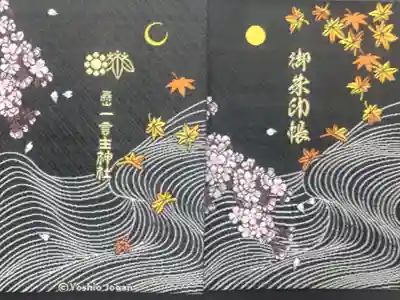 御朱印帳
一言主神社
©Yoshio